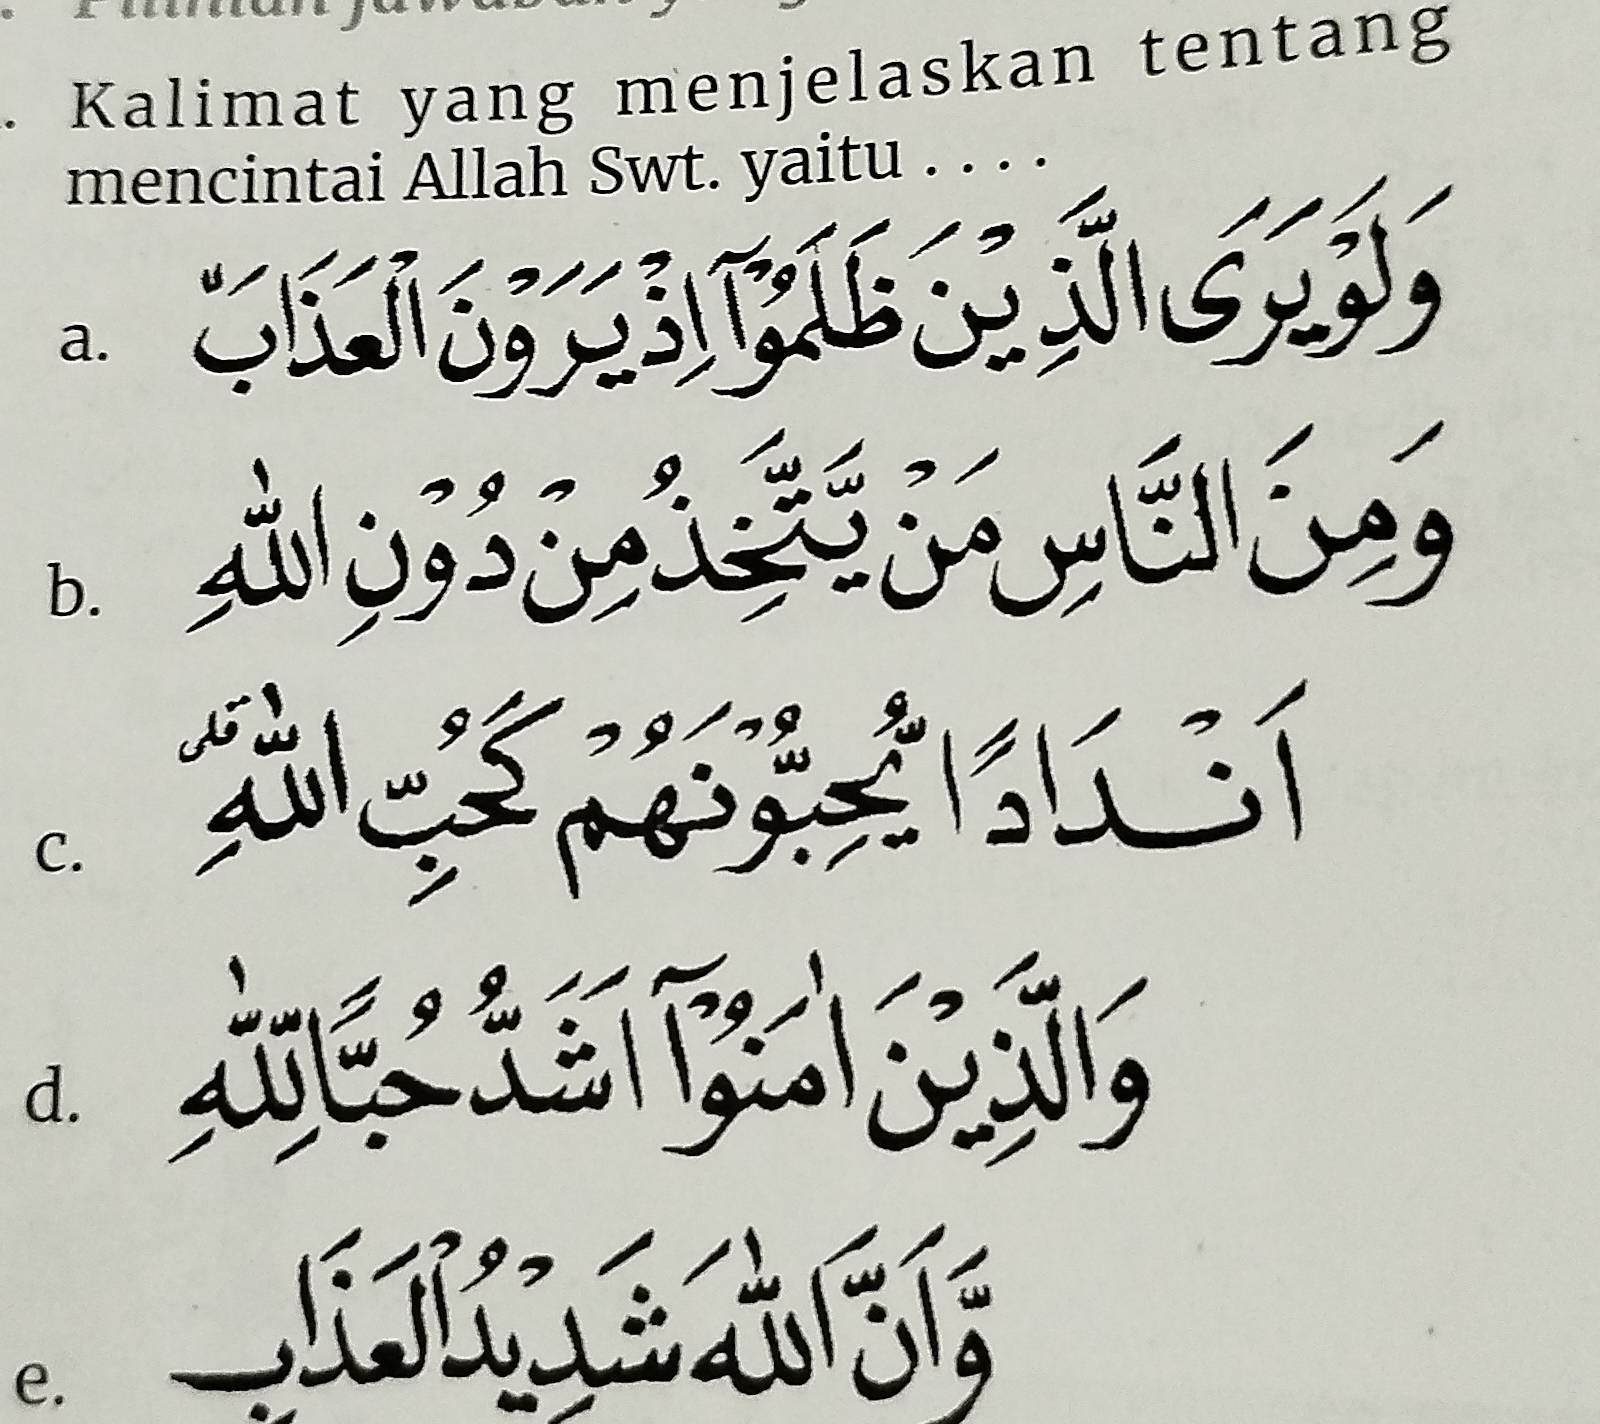 . Kalimat yang menjelaskan tentang
mencintai Allah Swt. yaitu . . . .
a. وَلَوْيَرَى الَّذِيْنَ ظَلَمُوْٓا اِذْيَرَوْنَ الْعَذَابَّ
b. وَمِنَ النَّاسِ مَنْ يَّتَّخِذُ مِنْ دُوْنِ اللّٰهِ
c. اَنْدَادًا يُّحِبُّوْنَهُمْ كَحُبِّ اللّٰهِ ۗ
d. وَالَّذِيْنَ اٰمَنُوْٓا اَشَدُّ حُبًّالِلّٰهِ
e. وَّاَنَّ اللّٰهَ شَدِيْدُالْعَذَابِ